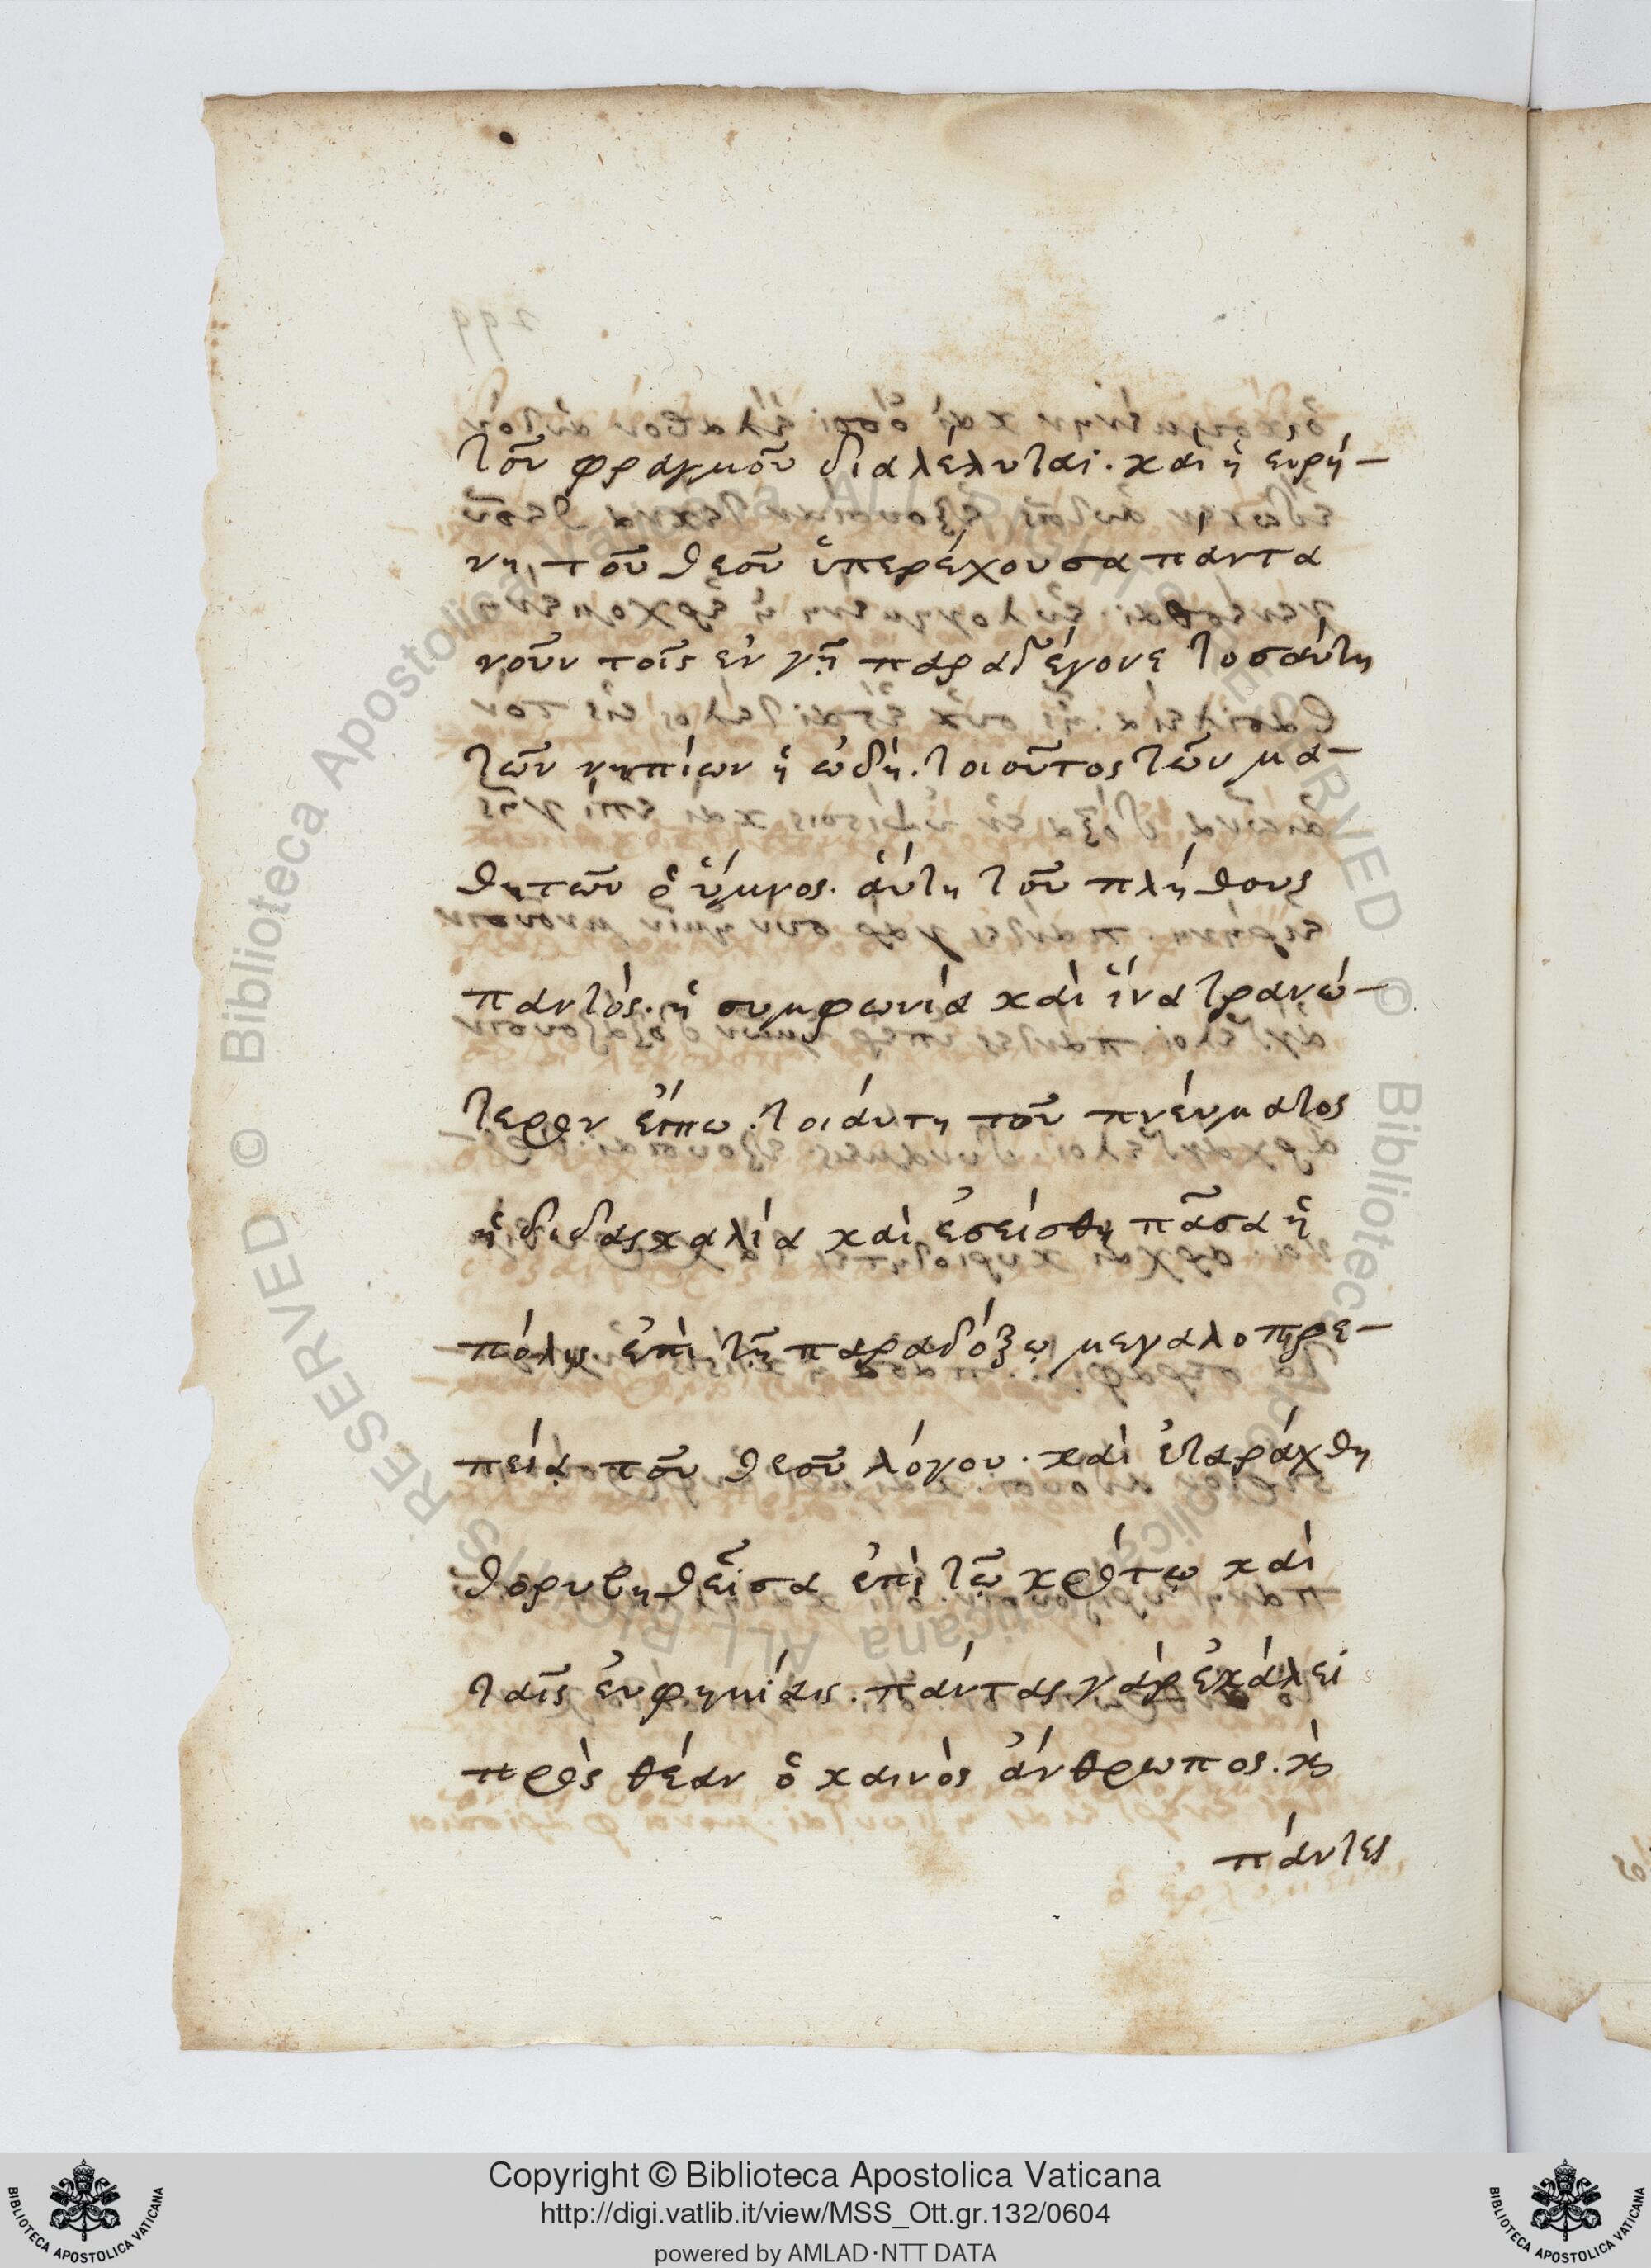 τοῦ φραγμοῦ διαλέλυται. και ἡ ειρή-
νη, τοῦ θεοῦ ὑπερέχουσα πάντα
νοῦν τοῖς εν γῆ παραδέγονε τοσάυτη
τῶν νηπίων ἡ ὠδή. τοιοῦτος τῶν μα-
θητῶν ὁ ὕμνος. ἅυτη τοῦ πλήθους
παντὸς. ἡ συμφωνία καὶ ἵνα τρανώ-
τερον ἔιπω. τοιάυτη τοῦ πνέυματος
ἡ διδασκαλία καὶ ἐσείσθη πᾶσα ἡ
πόλις ἐπὶ τῆ παραδόξω μεγαλοπρε-
πεία τοῦ θεοῦ λόγου. καὶ ἐταράχθη
θορυβηθεῖσα ἐπὶ τῷ κρότῳ καὶ
ταῖς ἐυφημίαις. πάντας γὰρ ἐκάλει
πρὸς θέαν ὁ καινὸς ἄνθρωπος. κὶ
πάντες
Copyright © Biblioteca Apostolica Vaticana
http://digi.vatlib.it/view/MSS_Ott.gr.132/0604
powered by AMLAD·NTT DATA
BIBLIOTECA APOSTOLICA VATICANA
BIBLIOTECA APOSTOLICA VATICANA